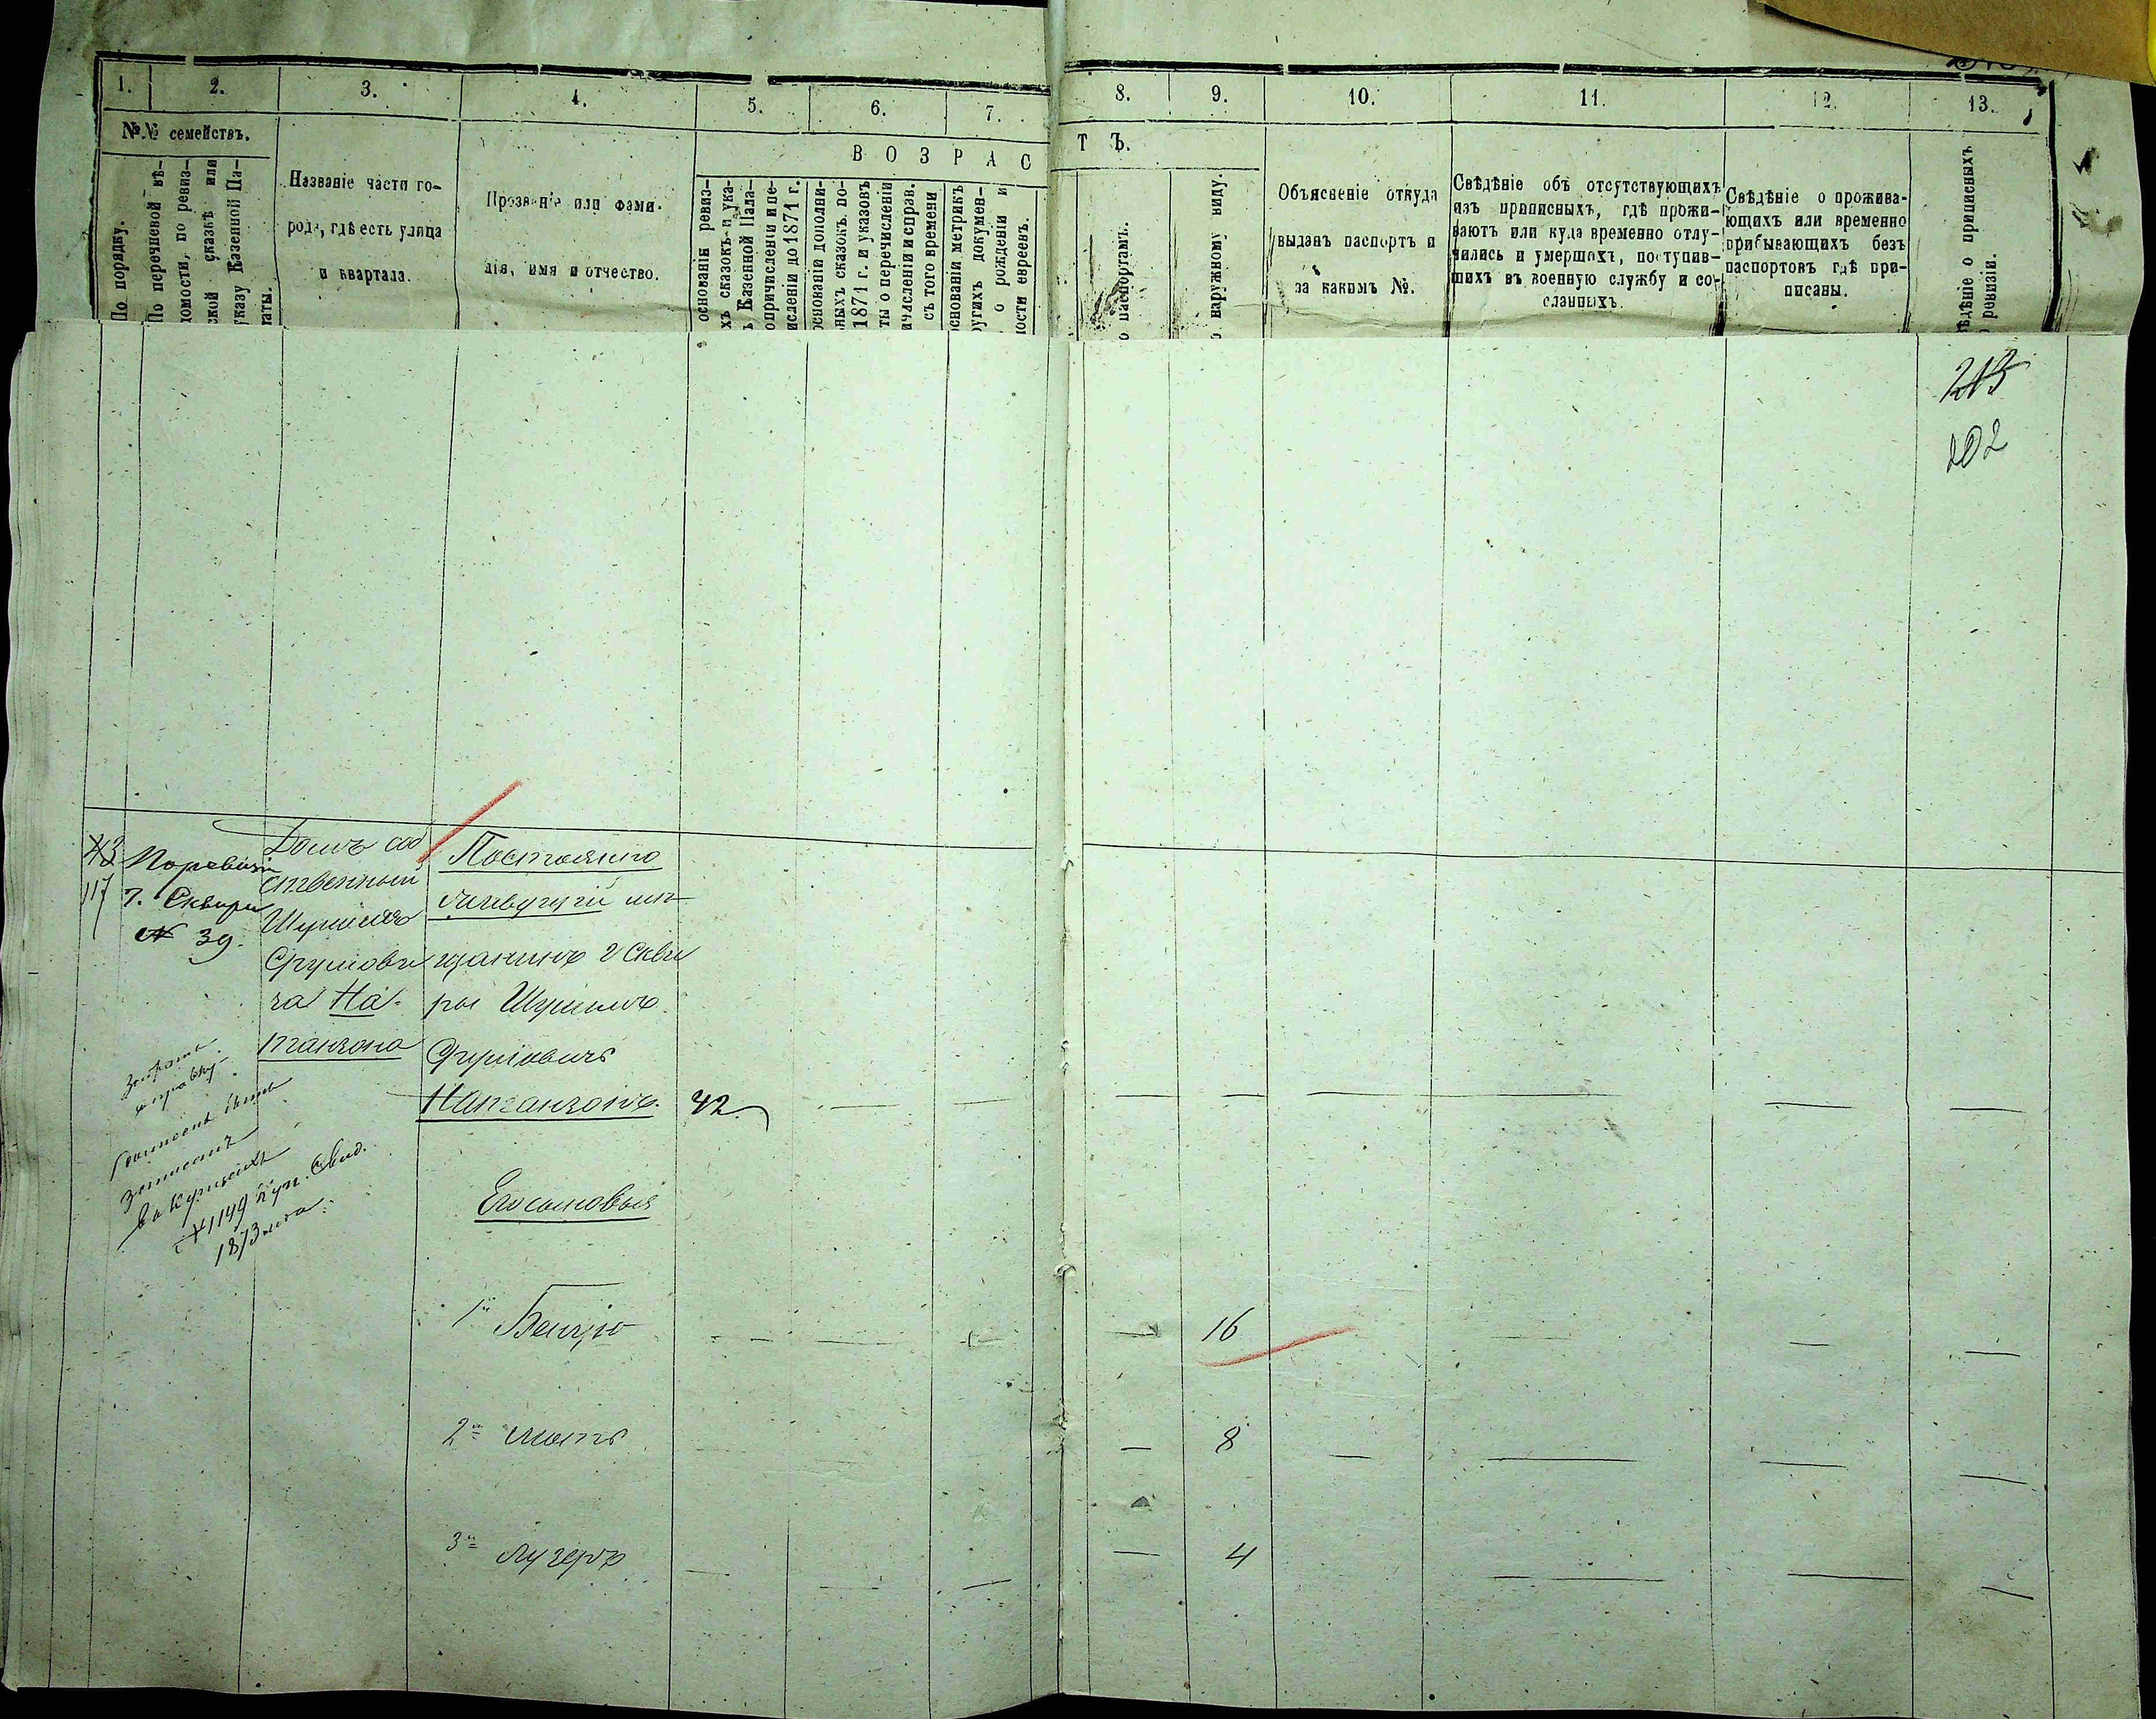 1.
2.
3.
4.
5.
6.
7.
8.
9.
10.
11.
12.
13.
№№ семействъ.
По порядку.
По перечневой вѣ-
домости, по ревиз-
ской сказкѣ или
указу Казенной Па-
латы.
Названіе части го-
рода, гдѣ есть улица
и квартала.
Прозваніе или фами-
лія, имя и отчество.
ВОЗРАС
ТЪ.
основаніи ревиз-
хъ сказокъ и ука-
ъ Казенной Пала-
опричисленіи и пе-
исленіи до 1871 г.
основаніи дополни-
ныхъ сказокъ по-
1871 г. и указовъ
ты о перечисленіи
ичисленіи исправ.
съ того времени
основаніи метрикъ
ругихъ докумен-
о рожденіи и
ности евреевъ.
о паспортамъ.
о наружному виду.
Объясненіе откуда
выданъ паспортъ и
за какимъ №.
Свѣдѣніе объ отсутствующихъ
изъ приписныхъ, гдѣ прожи-
ваютъ или куда временно отлу-
чились и умершихъ, поступив-
шихъ въ военную службу и со-
сланныхъ.
Свѣдѣніе о прожива-
ющихъ или временно
прибывающихъ безъ
паспортовъ гдѣ при-
писаны.
ѣдѣніе о приписныхъ
о ревизіи.
213
202
43
117
По ревизіи
г. Сквири
№ 39.
Домъ соб
ственный
Шулима
Сруловы
ча На-
танзона
Постоянно
живущій мѣ-
щанинъ г Скви
ры Шулимъ
Сруловичъ
Натанзонъ. 42
Его сыновья
1й Бенцю 16
2й Мотъ 8
3й Лузеръ 4
справку
записанъ
въ купцахъ
№ 1149 куп. Свид.
1873 года.